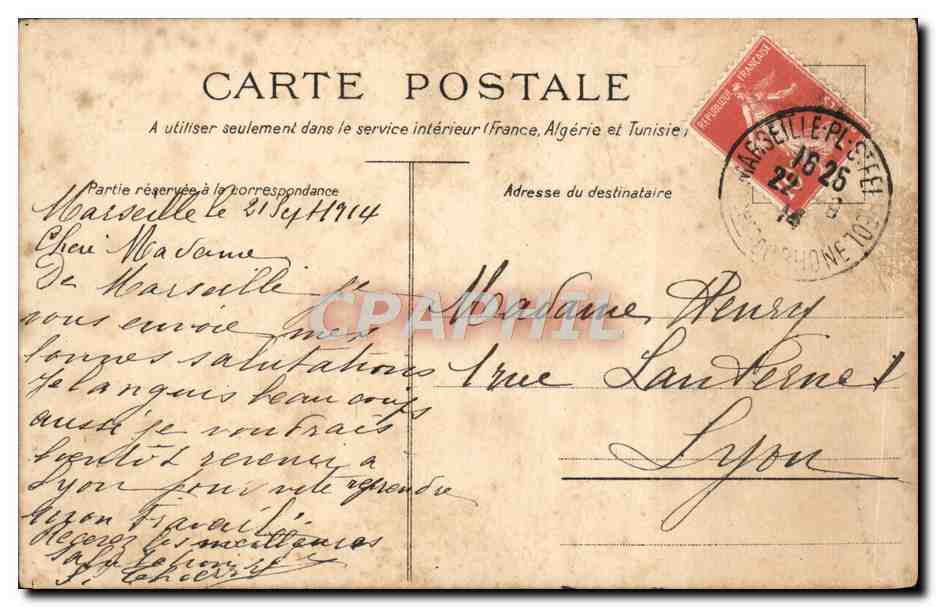 CARTE POSTALE
A utiliser seulement dans le service intérieur (France, Algérie et Tunisie)
REPUBLIQUE FRANÇAISE
MARSEILLE-PL. ST FERREOL
16*25
22
RHONE
Partie réservée à la correspondance
Adresse du destinataire
Marseille le 21 Sept 1914
Cheri Madame
De Marseille je
vous envoie mes
bonnes salutations
Je languis beaucoup
aussi je voudrais
bientôt revenir a
Lyon pour vite reprendre
mon travail
Recevez les meilleures
salutations
Madame Henry
1 rue Lanterne 1
Lyon
CPAPHIL